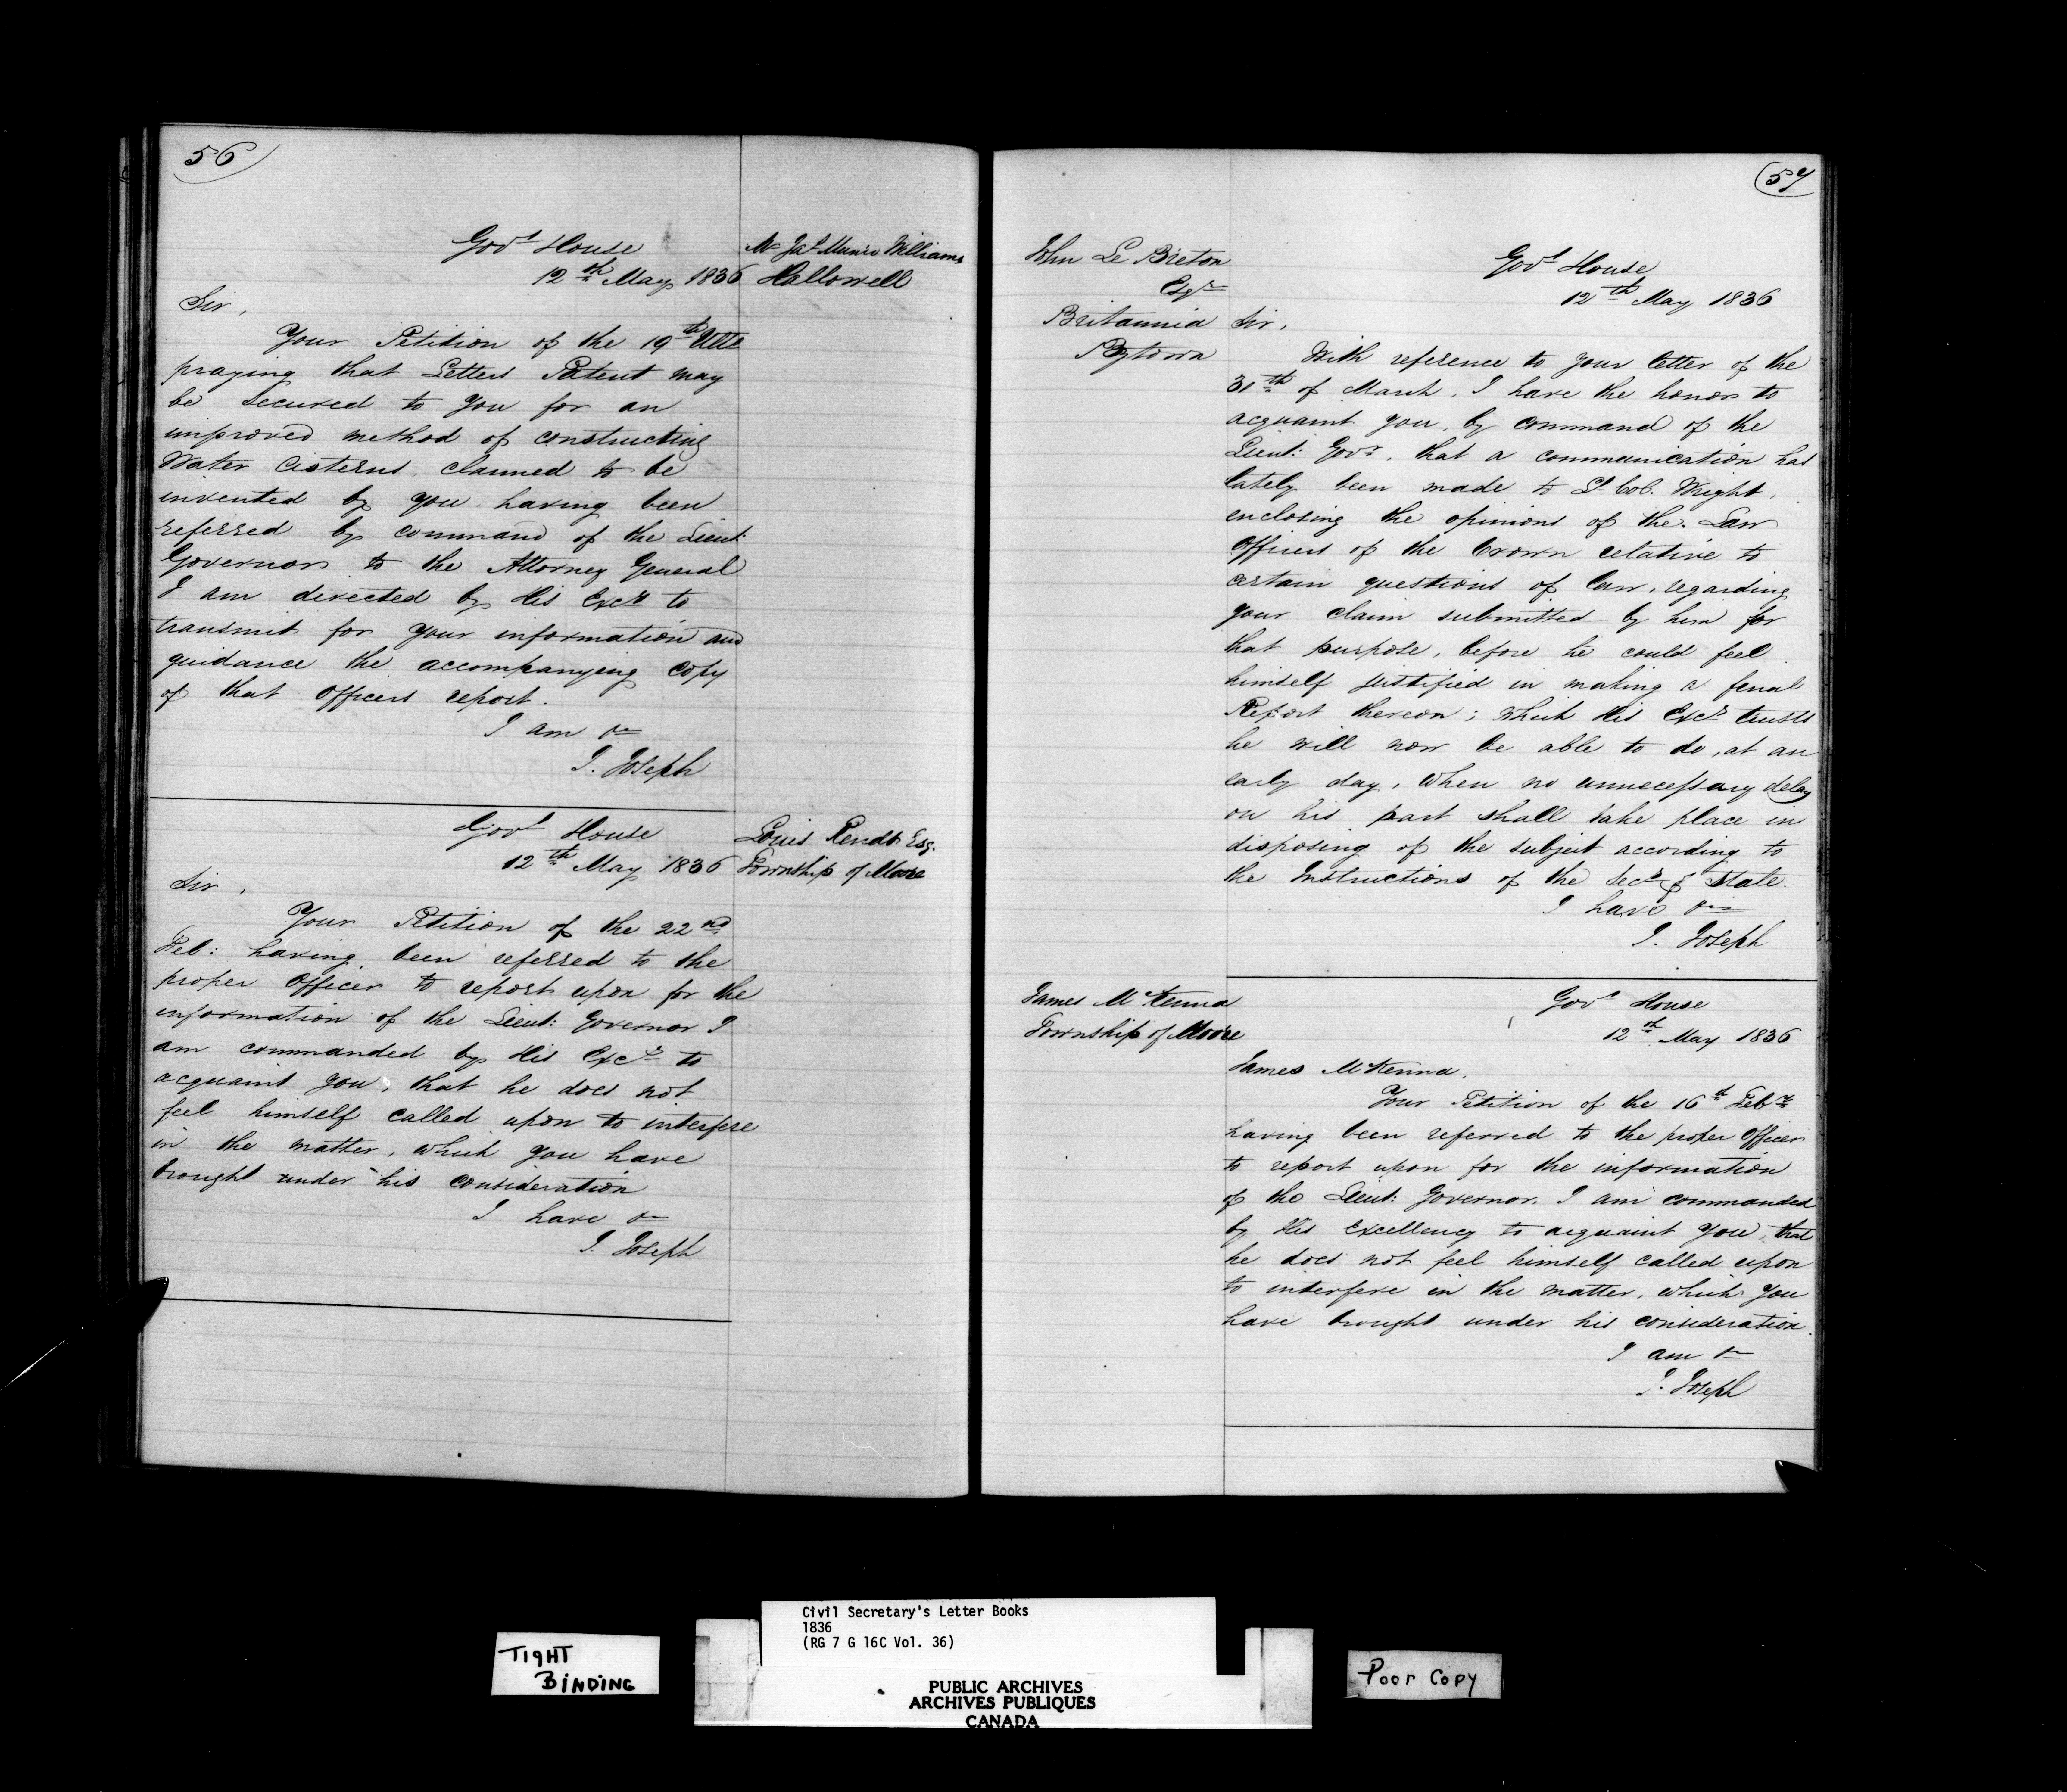 56
Govt House
12th May 1836
Mr Jas Munro Williams
Hallowell
Sir,
Your Petition of the 19th Ulto
praying that Letters Patent may
be secured to you for an
improved method of constructing
Water Cisterns, claimed to be
invented by you, having been
referred by command of the Lieut:
Governor to the Attorney General
I am directed by His Excy to
transmit for your information and
guidance the accompanying copy
of that Officers report.
I am &c
J. Joseph
Govt House
12th May 1836
Louis Esq.
Township of Moore
Sir,
Your Petition of the 22nd
Feb: having been referred to the
proper Officer to report upon for the
information of the Lieut: Governor I
am commanded by His Excy to
acquaint you, that he does not
feel himself called upon to interfere
in the matter, which you have
brought under his consideration
I have &c
J. Joseph
57
John Le Breton
Esqr
Britannia
Bytown
Govt House
12th May 1836
Sir,
With reference to your letter of the
31th of March, I have the honor to
acquaint you, by command of the
Lieut: Govr, that a communication has
lately been made to Lt Col. Wright,
enclosing the opinions of the Law
Officers of the Crown relative to
certain questions of law, regarding
your claim submitted by him for
that purpose, before he could feel
himself justified in making a final
Report thereon; which His Excy trusts
he will now be able to do, at an
early day, when no unnecessary delay
on his part shall take place in
disposing of the subject according to
the Instructions of the Secy of State.
I have &c
J. Joseph
James McKenna
Township of Moore
Govt House
12th May 1836
James McKenna,
Your Petition of the 16th Feby
having been referred to the proper Officer
to report upon for the information
of the Lieut: Governor. I am commanded
by His Excellency to acquaint you, that
he does not feel himself called upon
to interfere in the matter, which you
have brought under his consideration.
I am &c
J. Joseph
TIGHT
BINDING
Civil Secretary's Letter Books
1836
(RG 7 G 16C Vol. 36)
PUBLIC ARCHIVES
ARCHIVES PUBLIQUES
CANADA
Poor Copy